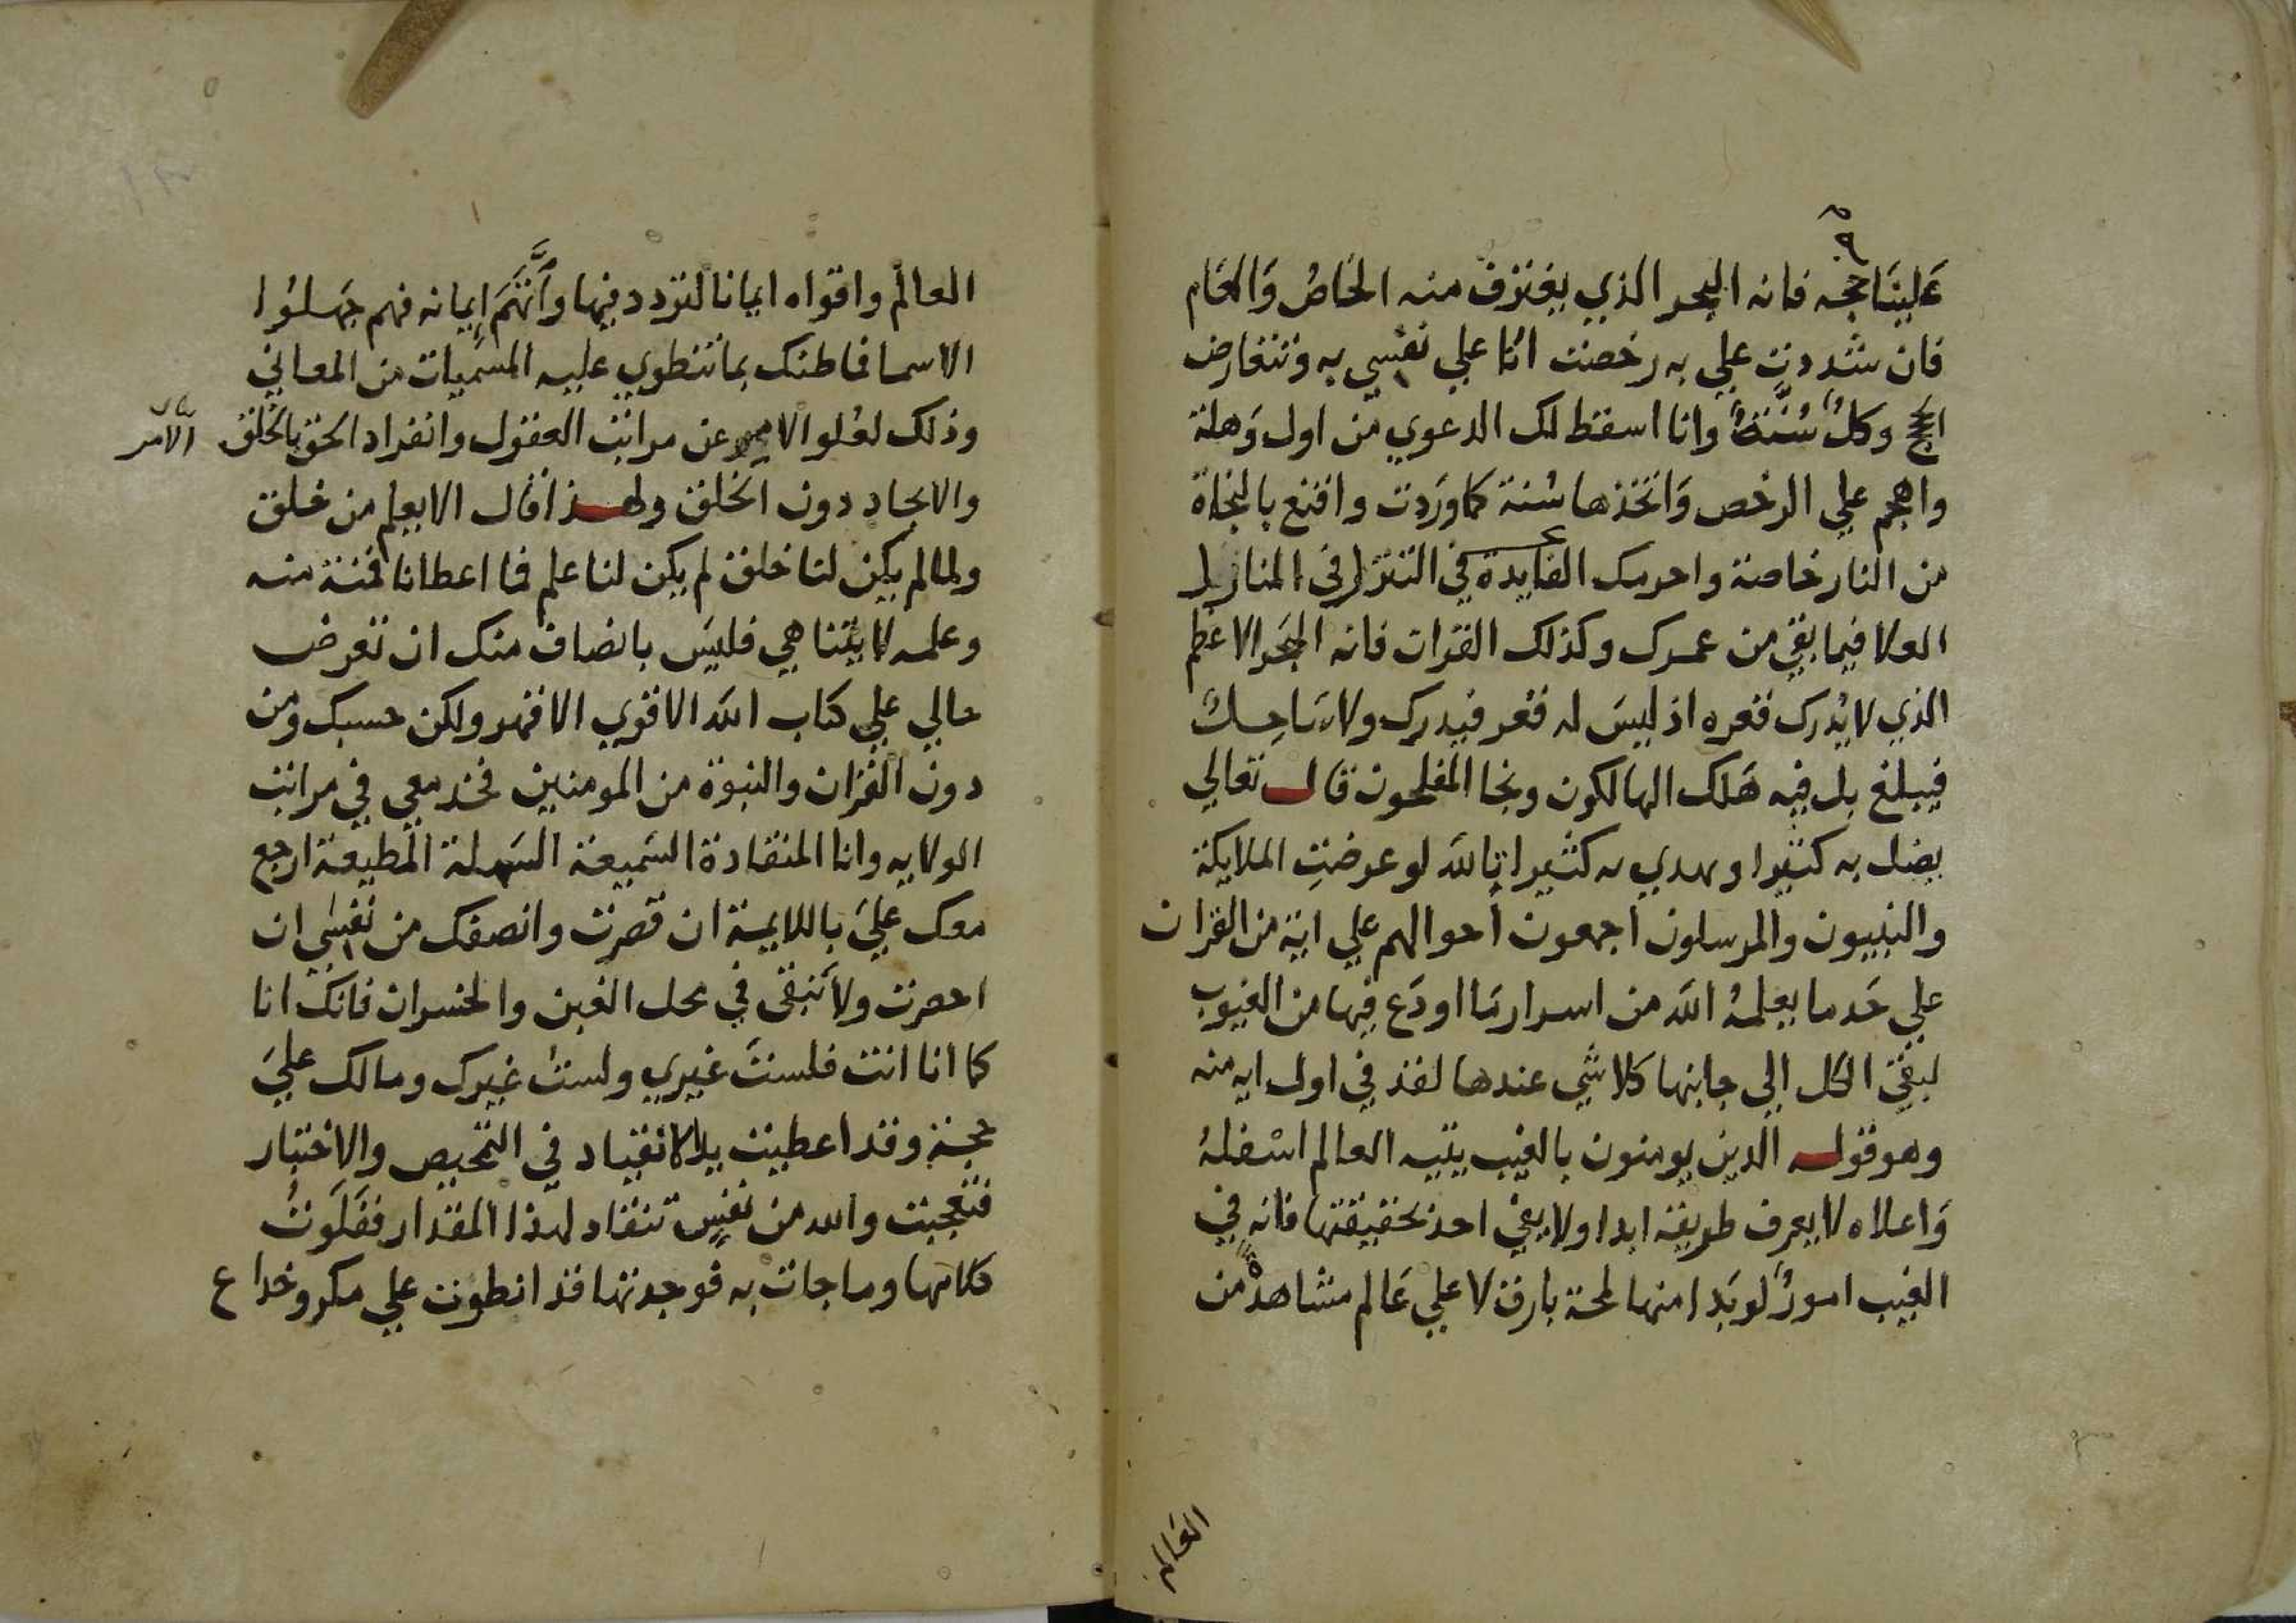 عَلينَا حجه فانه البحر الذي يغترف منه الخاصُ وَالعَام
فان شددت علي به رخصت انا علي نفسي به وتتعارض
الحجج وكلٌ سُنَّةٌ وانا اسقط لك الدعوي من اول وَهلة
واهجم علي الرخص وَاتخذها سُنة كما وَردت واقنع بالنجاة
من النار خاصة واحرمك الفايدة في التنزل في المنازل
العلا فيما بقي من عمرك وكذلك القران فانه البحر الاعظم
الذي لا يُدرك قعره اذ ليسَ له قعر فيدرك ولا سَاحِلٌ
فيبلغ بل فيه هَلك الهالكون ونجا المفلحون قال تعالي
يضل به كثيرا ويهدي به كثيرا تالله لو عرضتِ الملايكة
والنبيون والمرسلون اجمعون احوالهم علي اية من القران
علي حَد ما يعلمهُ الله من اسرار مَا اودَع فيها من الغيوب
لبقي الكل الي جانبها كلا شي عندها لفذ في اول ايه منه
وهو قوله الذين يومنون بالغيب يتيه العالم اسْفلهُ
وَاعلاه لا يعرف طريقة ابدا ولا يفي احد بحقيقتها فانه في
الغيب امورٌ لو بَدا منها لمحة بارق لا علي عَالم مشاهد من
العَالم
العالم واقواه ايمانا لتردد فيها وَاَتَّهَم اِيمانه فهم جَهلوُا
الاسما فما ظنك بما تنطوي عليه المسَميات من المعاني
وذلك لعُلو الامر عن مراتب العقول وانفراد الحق بالخلق
الامر
والايجاد دون الخلق ولهذا قال الا يعلم من خلق
ولما لم يكن لنا خلق لم يكن لنا علم فما اعطانا فمنة منه
وعلمه لا يتناهي فليسَ بانصاف منك ان تعرض
حالي علي كتاب الله الاقوي الاقهر ولكن حسبك ومن
دون القران والنبوة من المومنين فخذ معي في مراتب
الولايه وانا المنقادة السَميعة السَهلة المطيعة ارجع
معك عليَ باللايمة ان قصرت وانصفك من نفسي ان
احصرت ولا نبقى في محل الغبن والخسران فانك انا
كما انا انت فلستَ غيري ولستُ غيرك ومالك عليَ
حجة وقد اعطيت يد الانقياد في التمحيص والاختبار
فتعجبت والله من نفسٍ تنقاد لهذا المقدار ففلَوتُ
كلامها وما جات به فوجدتها قد انطوت علي مكر وخداع